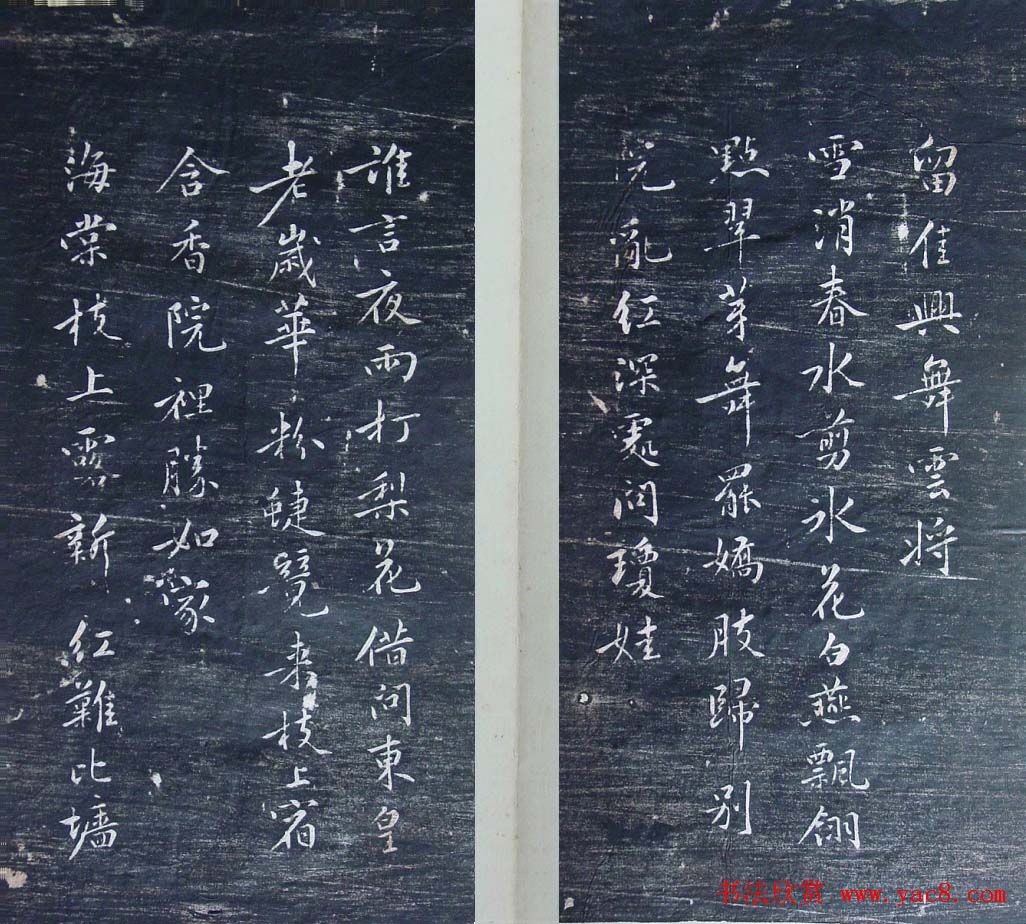 留佳興舞雲將
雪消春水剪氷花白燕飄翎
點翠芽舞罷嬌肢歸別
院亂紅深處瓊娃
誰言夜雨打梨花借問東皇
老歲華粉蜨覓來枝上宿
含香院裡勝如家
海棠枝上露新紅難比墻
书法欣赏 www.yac8.com